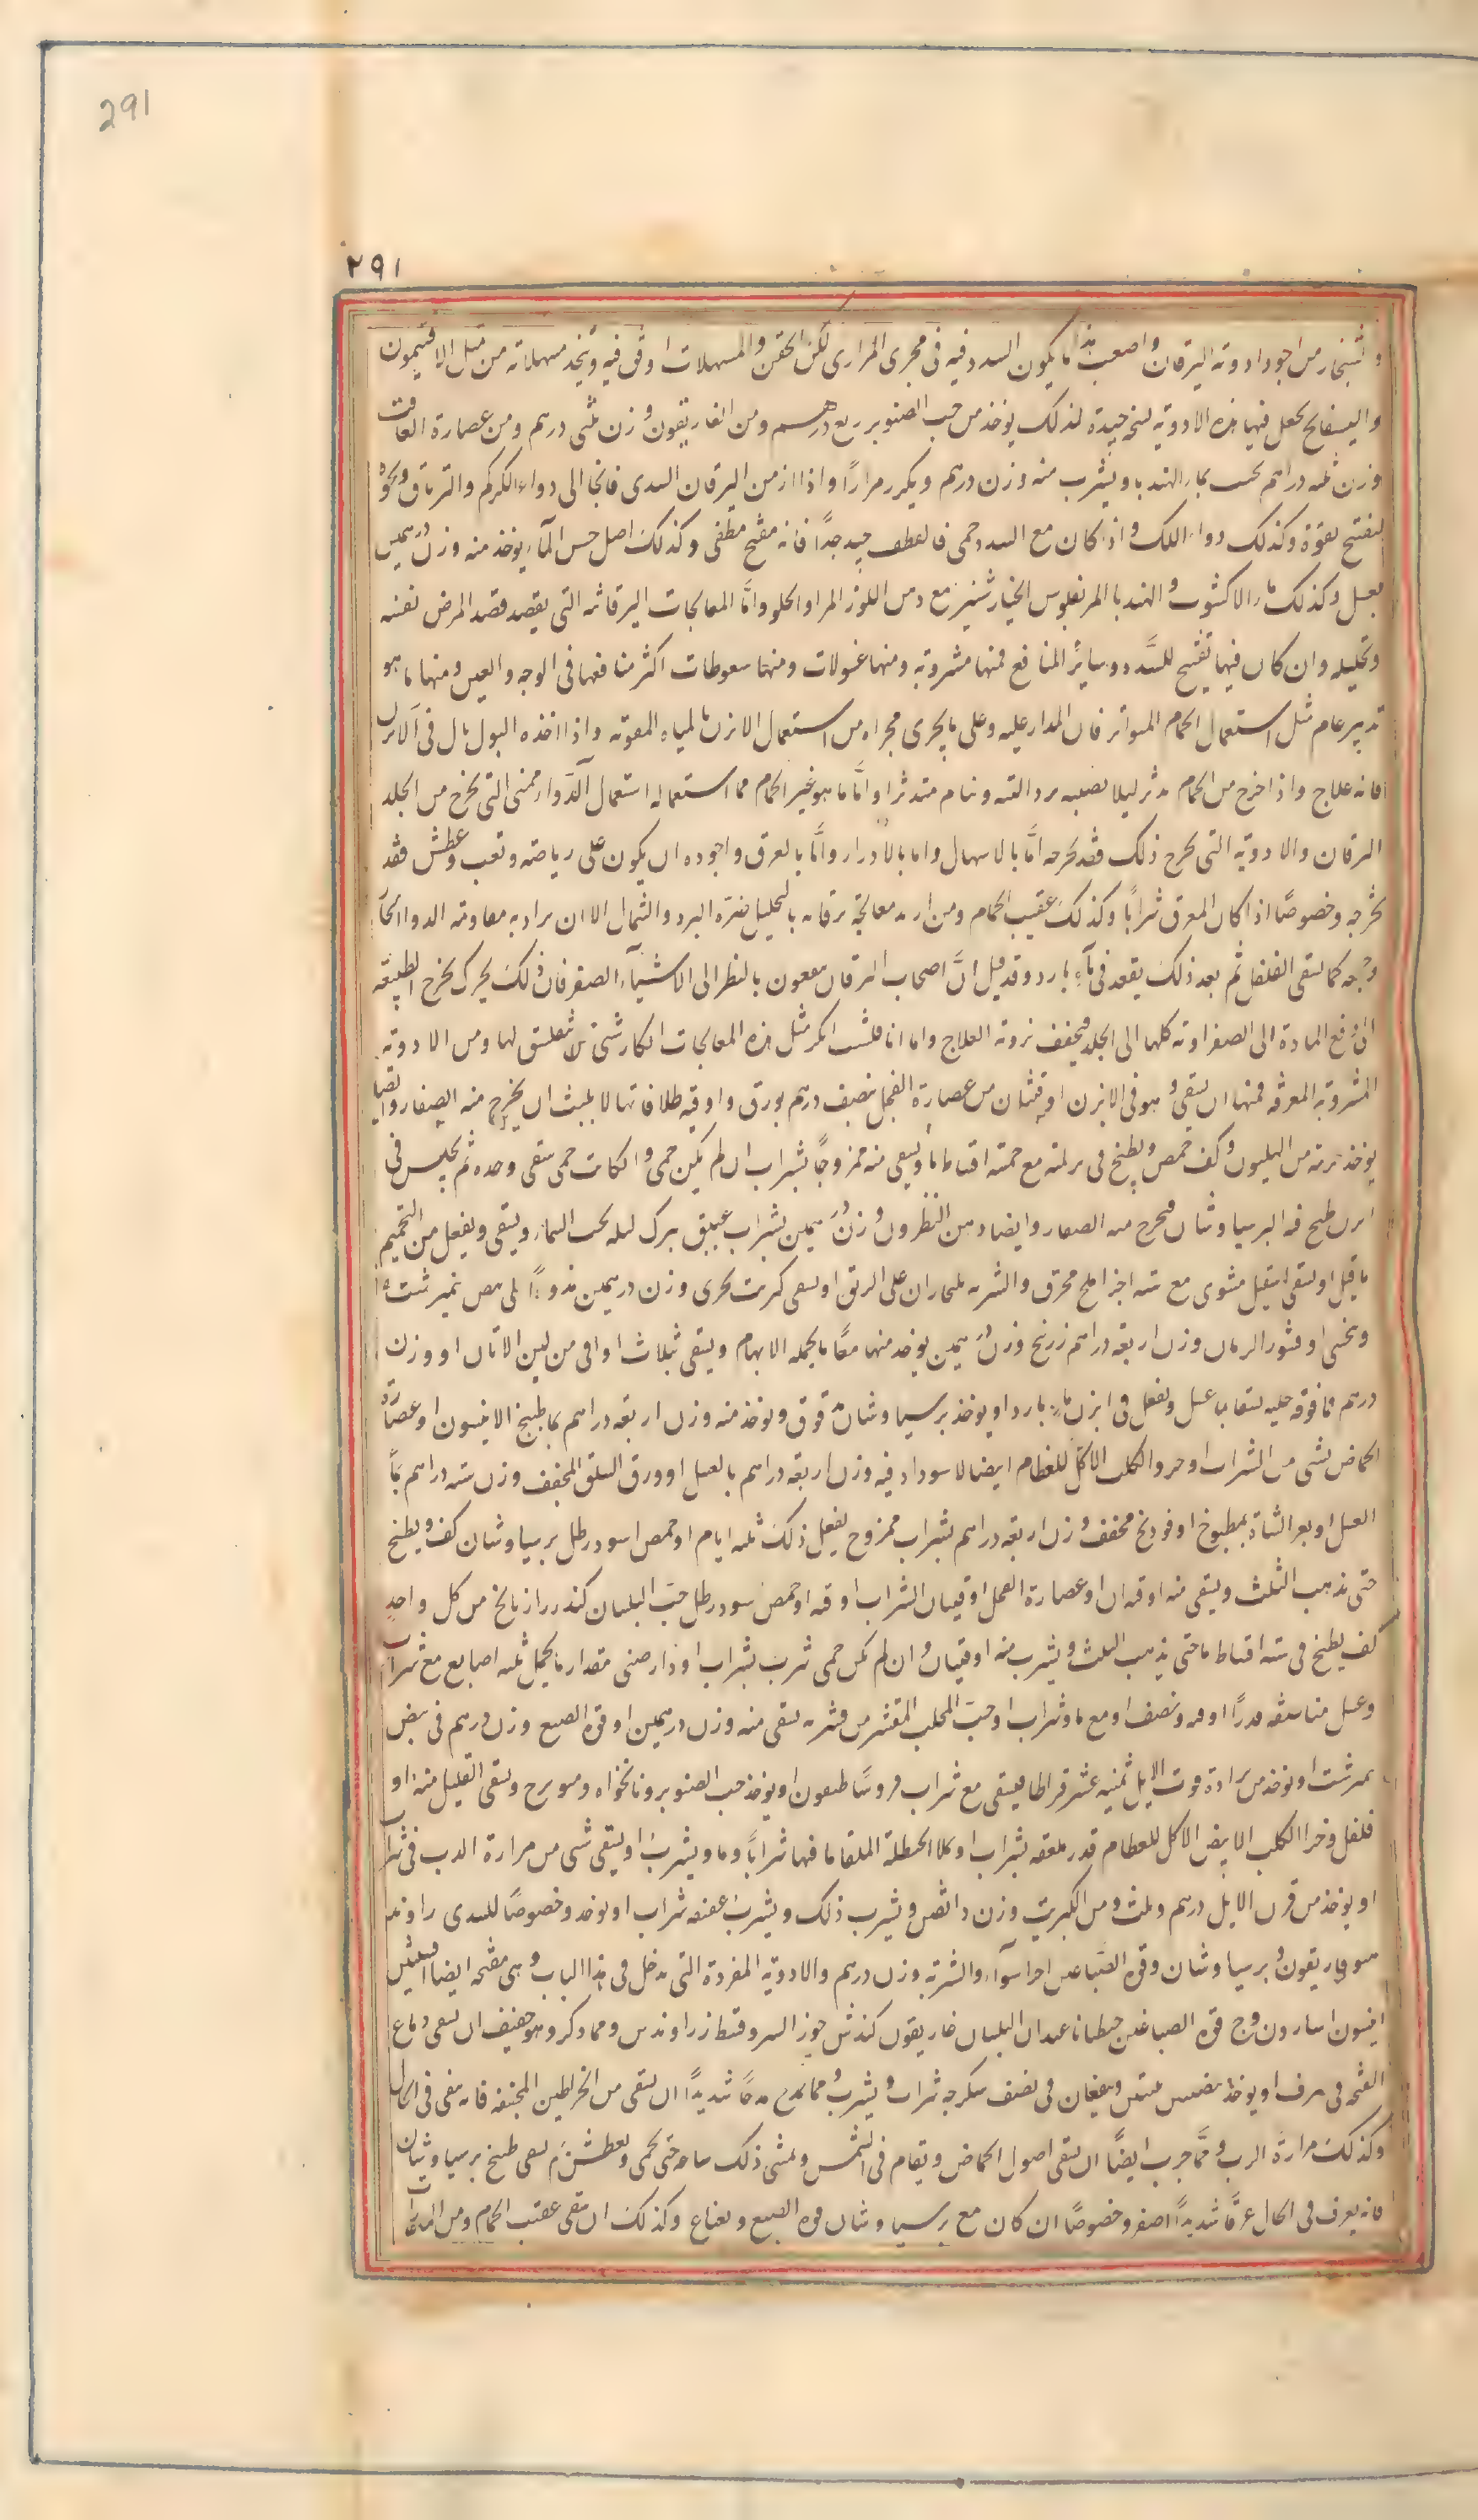 291
٢٩١
من اجود ادوية اليرقان واصعب هذا ما يكون السدد فيه فى مجرى المرارى لكن الحقن والمسهلات اوفق فيه ويتخذ مسهلاته من مثل الافتيمون
والبسفايج يجعل فيها هذه الادوية نسخه جيدة لذلك يوخذ من حب الصنوبر ربع درهم ومن الغاريقون وزن ثلثى درهم ومن عصارة الغافت
وزن ثلثه دراهم بماء الهندبا ويشرب منه وزن درهم ويكرر مرارًا واذا ازمن اليرقان السدى فالجا الى دواء الكركم والترياق ونحوه
ليفتح بقوة وكذلك دواء اللك واذا كان مع السدد حمى فالقطف جيد جدًا فانه مفتح مطفى وكذلك اصل خس الماء يوخذ منه وزن درهمين
بعسل وكذلك ماء الاكشوث والهندبا المر بفلوس الخيار شنبر مع دهن اللوز المر او الحلو وامّا المعالجات اليرقانيه التى يقصد قصد المرض نفسه
وتحليله وان كان فيها تفتيح للسّدد وساير المنافع فمنها مشروبة ومنها غسولات ومنها سعوطات اكثر منافعها فى الوجه والعين ومنها ما هو
تدبير عام مثل استعمال الحمام المتواتر فان المدار عليه وعلى ما يجرى مجراه من استعمال الابزن بالمياه المقوية واذا اخذه البول بال فى الابزن
فانه علاج واذا خرج من الحمام تدثر ليلا يصيبه برد البته ونام متدثرا وامّا ما هو غير الحمام مما استعماله استعمال الدّوا فمن التى يخرج من الجلد
اليرقان والادوية التى تخرج ذلك فقد تخرجه امّا بالاسهال واما بالادرار وامّا بالعرق واجوده ان يكون على رياضه وتعب وعطش فقد
تخرجه وخصوصًا اذا كان المعرق شرابًا وكذلك عقيب الحمام ومن اريد معالجة يرقانه بالتحليل ضرّه البرد والشمال الا ان يراد به معاونة الدواء الحار
كما يسقى الفلفل ثم بعد ذلك يقعد فى ماء بارد وقد قيل انّ اصحاب اليرقان ينتفعون بالنظر الى الاشياء الصفر فان ذلك يحرك يخرج الطبيعة
الى دفع المادة الى الصفراوية كلها الى الجلد فيخفف مؤنة العلاج واما انا فلست انكر مثل هذه المعالجات انكار شتى لا تتعلق لها ومن الادوية
المشروبة المعرقه فمنها ان يسقى وهو فى الابزن اوقيتان من عصارة الفجل بنصف درهم بورق واوقيه طلا فانها لا يلبث ان يخرج منه الصفار وايضا
يوخذ من الهليون وكف حمص ويطبخ فى برمة مع خمسة اقساط ماء ويسقى منه ممزوجًا بشراب ان لم يكن حمى وان كانت حمى يسقى وحده ثم يجلس فى
ابزن طبخ فيه البرسياوشان فيخرج منه الصفار وايضا دهن النظرون وزن درهمين بشراب عتيق يترك ليله تحت السماء ويسقى ويفعل من التحميم
ما قيل او يسقى اسقيل مشوى مع سته اجزا ملح محرق والشربه ملعقتان على الريق او يسقى كبريت بحرى وزن درهمين مذرورًا على بيض نيمبرشت
ويتحسى او قشور الرمان وزن اربعة دراهم زرنيخ وزن درهمين يوخذ منها معًا ما يحمله الابهام ويسقى بثلاث اواقى من لبن الاتان او وزن
درهم فما فوقه حلبه يسقاها بماء عسل ويفعل فى ابزن ماء بارد او يوخذ برسياوشان مدقوق ويوخذ منه وزن اربعة دراهم بماء طبيخ الانيسون او عصارة
الحماض بشى من الشراب او خرو الكلب الآكل للعظام ايضا لا سواد فيه وزن اربعة دراهم بالعسل او ورق السلق المجفف وزن سته دراهم بماء
العسل او بعر الشاة بمطبوخ او فوذنج مجفف وزن اربعة دراهم بشراب ممزوج يفعل ذلك ثلثه ايام او حمص اسود رطل برسياوشان كف ويطبخ
حتى يذهب الثلث ويسقى منه اوقيتان او عصارة الفجل اوقيتان الشراب اوقيه او حمص اسود رطل حب البلسان كندر رازيانج من كل واحد
كف يطبخ فى سته اقساط ماء حتى يذهب الثلث ويشرب منه اوقيتان وان لم يكن حمى شرب بشراب او دارصينى مقدار ما يحمل ثلثه اصابع مع شراب
وعسل اوقيه ونصف او مع ماء وشراب او حب المحلب المقشر من قشره يسقى منه وزن درهمين او فوة الصبغ وزن درهم فى بيض
نيمبرشت او يوخذ من برادة قرن الايل ثمنية عشر قيراطا فيسقى مع شراب او يوخذ حب الصنوبر ونانخواه ويسقى القليل منه او
فلفل وخرا الكلب الابيض الآكل للعظام قدر ملعقه بشراب او كلا الحنظلة الملقا ما فيها شرابًا وماء ويشرب او يسقى شى من مرارة الدب فى شراب
او يوخذ من قرن الايل درهم وثلث ومن الكبريت وزن دانقين ويشرب ذلك ويشرب عقبه شراب او يوخذ وخصوصًا للسدى راوند
برسياوشان وفوة الصباغين اجزا سواء والشربة وزن درهم والادوية المفردة التى تدخل فى هذا الباب وهى مفتحه ايضا
انيسون اسارون وج فوة الصباغين جنطيانا عيدان البلسان غاريقون كندش جوز السرو قسط زراوند ومما ذكر وهو خفيف ان يسقى دماغ
القبجه فى صرف او يوخذ فى نصف سكرجه شراب ويشرب ومما يمدح مدحًا شديدًا ان يسقى من الخراطين المجففه فانه ينقى فى الحال
وكذلك مرارة الدب وممّا جرب ايضًا ان يسقى اصول الحماض ويقام فى الشمس ويمشى ذلك ساعة حتى يحمى ويعطش ثم يسقى طبيخ برسياوشان
فانه يعرق فى الحال عرقًا شديدًا اصفر وخصوصًا ان كان مع برسياوشان فوه الصبغ ونعناع وكذلك ان سقى عقيب الحمام ومن